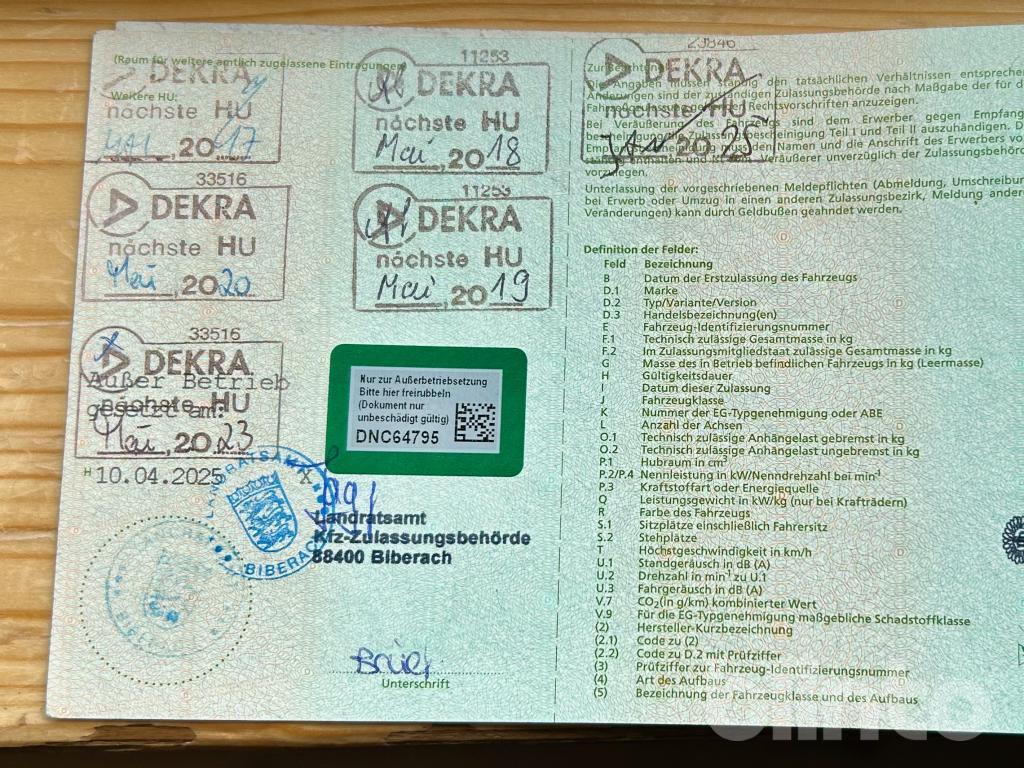 (Raum für weitere amtlich zugelassene Eintragungen)
Weitere HU:
DEKRA
nächste HU
MAI, 2017
11253
DEKRA
nächste HU
Mai, 2018
33516
DEKRA
nächste HU
Mai, 2020
11253
DEKRA
nächste HU
Mai, 2019
33516
DEKRA
nächste HU
Mai, 2023
Außer Betrieb
gesetzt am:
H 10.04.2025
Nur zur Außerbetriebsetzung
Bitte hier freirubbeln
(Dokument nur
unbeschädigt gültig)
DNC64795
LANDRATSAMT
BIBERACH
Landratsamt
Kfz-Zulassungsbehörde
88400 Biberach
Unterschrift
DEKRA
nächste HU
2025
Die Angaben müssen ständig den tatsächlichen Verhältnissen entsprechen
Änderungen sind der zuständigen Zulassungsbehörde nach Maßgabe der für d
Fahrzeugzulassung geltenden Rechtsvorschriften anzuzeigen.
Bei Veräußerung des Fahrzeugs sind dem Erwerber gegen Empfang
Zulassungsbescheinigung Teil I und Teil II auszuhändigen. D
den Namen und die Anschrift des Erwerbers vo
Veräußerer unverzüglich der Zulassungsbehörd
vorzulegen.
Unterlassung der vorgeschriebenen Meldepflichten (Abmeldung, Umschreibun
bei Erwerb oder Umzug in einen anderen Zulassungsbezirk, Meldung ander
Veränderungen) kann durch Geldbußen geahndet werden.
Definition der Felder:
Feld Bezeichnung
B Datum der Erstzulassung des Fahrzeugs
D.1 Marke
D.2 Typ/Variante/Version
D.3 Handelsbezeichnung(en)
E Fahrzeug-Identifizierungsnummer
F.1 Technisch zulässige Gesamtmasse in kg
F.2 Im Zulassungsmitgliedstaat zulässige Gesamtmasse in kg
G Masse des in Betrieb befindlichen Fahrzeugs in kg (Leermasse)
H Gültigkeitsdauer
I Datum dieser Zulassung
J Fahrzeugklasse
K Nummer der EG-Typgenehmigung oder ABE
L Anzahl der Achsen
O.1 Technisch zulässige Anhängelast gebremst in kg
O.2 Technisch zulässige Anhängelast ungebremst in kg
P.1 Hubraum in cm³
P.2/P.4 Nennleistung in kW/Nenndrehzahl bei min⁻¹
P.3 Kraftstoffart oder Energiequelle
Q Leistungsgewicht in kW/kg (nur bei Krafträdern)
R Farbe des Fahrzeugs
S.1 Sitzplätze einschließlich Fahrersitz
S.2 Stehplätze
T Höchstgeschwindigkeit in km/h
U.1 Standgeräusch in dB (A)
U.2 Drehzahl in min⁻¹ zu U.1
U.3 Fahrgeräusch in dB (A)
V.7 CO₂(in g/km) kombinierter Wert
V.9 Für die EG-Typgenehmigung maßgebliche Schadstoffklasse
(2) Hersteller-Kurzbezeichnung
(2.1) Code zu (2)
(2.2) Code zu D.2 mit Prüfziffer
(3) Prüfziffer zur Fahrzeug-Identifizierungsnummer
(4) Art des Aufbaus
(5) Bezeichnung der Fahrzeugklasse und des Aufbaus